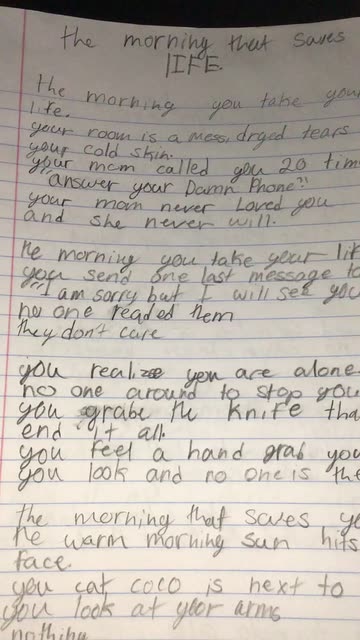 the morning that saves
LIFE.
the morning you take your
life.
your room is a mess, dryed tears
your cold skin.
your mom called you 20 tim
"answer your Damn Phone"!
your mom never Loved you
and she never will.
the morning you take your lif
you send one last message to
"I am sorry but I will see you
no one readed them
they don't care
you realize you are alone.
no one around to stop you
you grabe the knife tha
end it all.
you feel a hand grab you
you look and no one is the
the morning that saves yo
the warm morning sun hits
face.
you cat coco is next to
you look at yoor arms
nothing